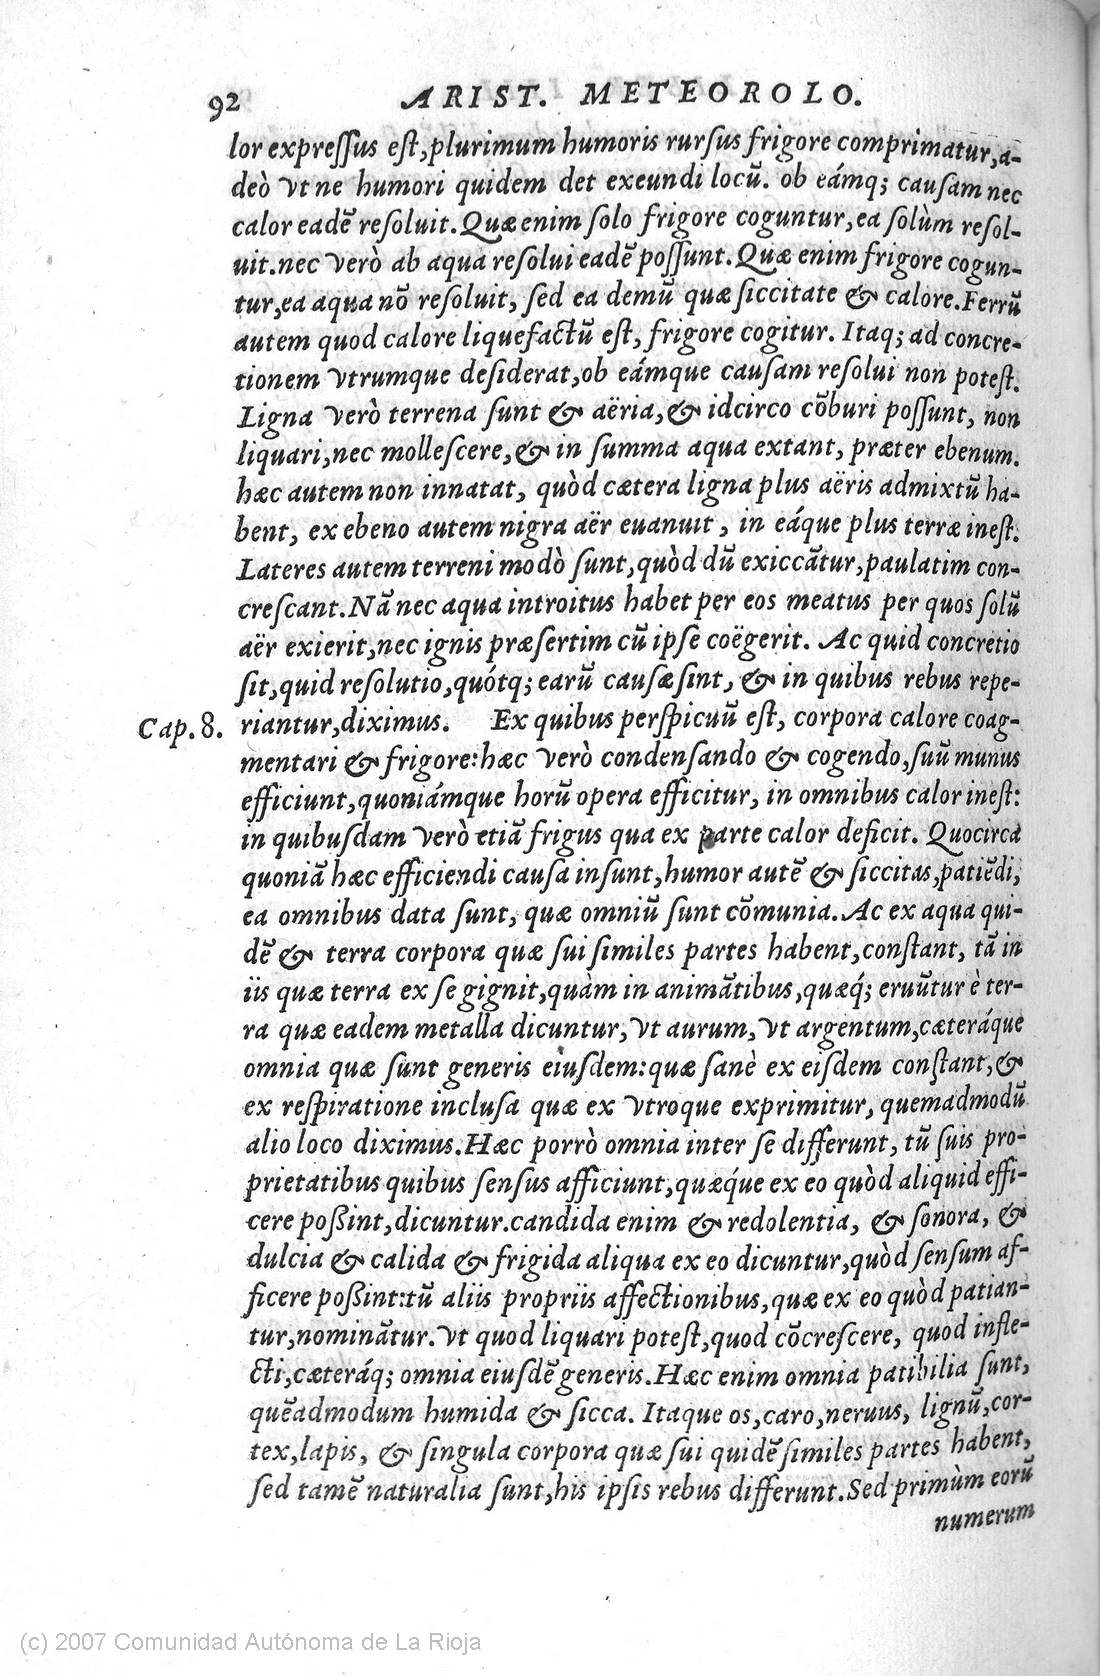 92 ARIST. METEOROLO.
lor expressus est,plurimum humoris rursus frigore comprimatur,a-
deò vt ne humori quidem det exeundi locũ. ob eámq; causam nec
calor eadẽ resoluit.Quæ enim solo frigore coguntur,ea solùm resol-
uit.nec verò ab aqua resolui eadẽ possunt.Quæ enim frigore cogun-
tur,ea aqua nõ resoluit, sed ea demũ quæ siccitate & calore.Ferrũ
autem quod calore liquefactũ est, frigore cogitur. Itaq; ad concre-
tionem vtrumque desiderat,ob eámque causam resolui non potest.
Ligna verò terrena sunt & aëria,& idcirco cõburi possunt, non
liquari,nec mollescere,& in summa aqua extant, præter ebenum.
hæc autem non innatat, quòd cætera ligna plus aëris admixtũ ha-
bent, ex ebeno autem nigra aër euanuit, in eáque plus terræ inest.
Lateres autem terreni modò sunt,quòd dũ exiccãtur,paulatim con-
crescant.Nã nec aqua introitus habet per eos meatus per quos solũ
aër exierit,nec ignis præsertim cũ ipse coëgerit. Ac quid concretio
sit,quid resolutio,quótq; earũ causæ sint, & in quibus rebus repe-
Cap.8. riantur,diximus. Ex quibus perspicuũ est, corpora calore coag-
mentari & frigore:hæc verò condensando & cogendo,suũ munus
efficiunt,quoniámque horũ opera efficitur, in omnibus calor inest:
in quibusdam verò etiã frigus qua ex parte calor deficit. Quocirca
quoniã hæc efficiendi causa insunt,humor autẽ & siccitas,patiẽdi,
ea omnibus data sunt, quæ omniũ sunt cõmunia.Ac ex aqua qui-
dẽ & terra corpora quæ sui similes partes habent,constant, tã in
iis quæ terra ex se gignit,quàm in animãtibus,quæq́; eruũtur è ter-
ra quæ eadem metalla dicuntur,vt aurum,vt argentum,cæteráque
omnia quæ sunt generis eiusdem:quæ sanè ex eisdem constant,&
ex respiratione inclusa quæ ex vtroque exprimitur, quemadmodũ
alio loco diximus.Hæc porrò omnia inter se differunt, tũ suis pro-
prietatibus quibus sensus afficiunt,quæq́ue ex eo quòd aliquid effi-
cere poßint,dicuntur.candida enim & redolentia, & sonora, &
dulcia & calida & frigida aliqua ex eo dicuntur,quòd sensum af-
ficere poßint:tũ aliis propriis affectionibus,quæ ex eo quòd patian-
tur,nominãtur.vt quod liquari potest,quod cõcrescere, quod infle-
cti,cæteráq; omnia eiusdẽ generis.Hæc enim omnia patibilia sunt,
quẽadmodum humida & sicca. Itaque os,caro,neruus, lignũ,cor-
tex,lapis, & singula corpora quæ sui quidẽ similes partes habent,
sed tamẽ naturalia sunt,his ipsis rebus differunt.Sed primùm eorũ
numerum
(c) 2007 Comunidad Autónoma de La Rioja